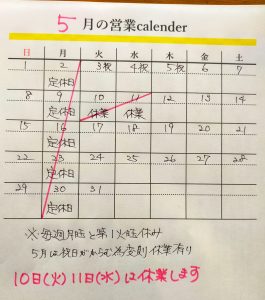 5月の営業calender
日 月 火 水 木 金 土
1 2 3祝 4祝 5祝 6 7
定休日
8 9 10 11 12 13 14
定休日 休業 休業
15 16 17 18 19 20 21
定休日
22 23 24 25 26 27 28
定休日
29 30 31
定休日
※毎週月曜と第1火曜休み
5月は祝日がからむ為変則休業有り
10日(火)11日(水)は休業します